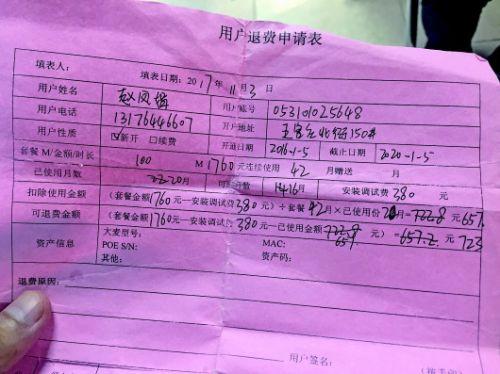 用户退费申请表
填表人： 填表日期：2017年11月3日
用户姓名 赵凤 用户账号 053101025648
用户电话 13176446607 开户地址 王官庄北街150#
用户性质 ☑新开 □续费 开通日期 2016-1-5 截止日期 2020-1-5
套餐 M/金额/时长 100 M 1760元连续使用 42 月赠送 月
已使用月数 20月 可 数 安装调试费 380 元
扣除使用金额 （套餐金额1760元—安装调试费380元）÷套餐42月×已使用份 月= 元 657.
可退费金额 （套餐金额1760元—安装调试费380元—已使用金额 657 元）= 元 723
资产信息 大麦型号： MAC:
POE S/N: 资产码:
其他:
退费原因：
用户签名：